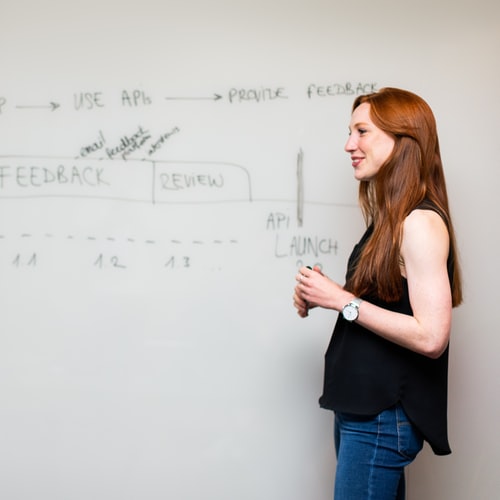 → USE APIs → PROVIDE FEEDBACK
email
feedback
FEEDBACK
REVIEW
API
LAUNCH
1.1 1.2 1.3